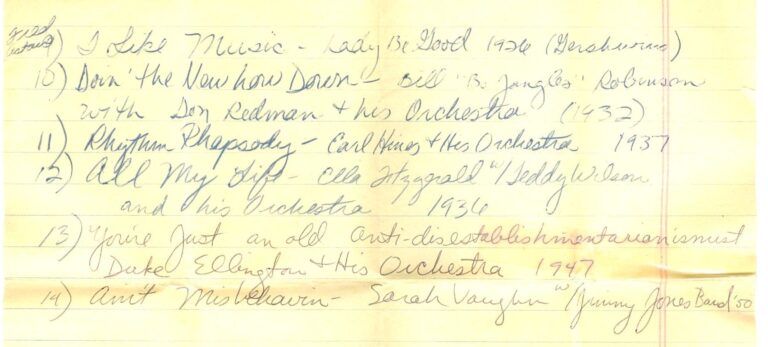 Fred Astaire
9) I Like Music - Lady Be Good 1926 (Gershwins)
10) Doin' the New Low Down - Bill "Bo Jangles" Robinson
with Don Redman + his Orchestra (1932)
11) Rhythm Rhapsody - Earl Hines + His Orchestra 1937
12) All My Life - Ella Fitzgerald w/Teddy Wilson
and his Orchestra 1936
13) "You're Just an old anti-disestablishmentarianismist
Duke Ellington + His Orchestra 1947
14) Ain't Misbehavin - Sarah Vaughn w/Jimmy Jones Band '50